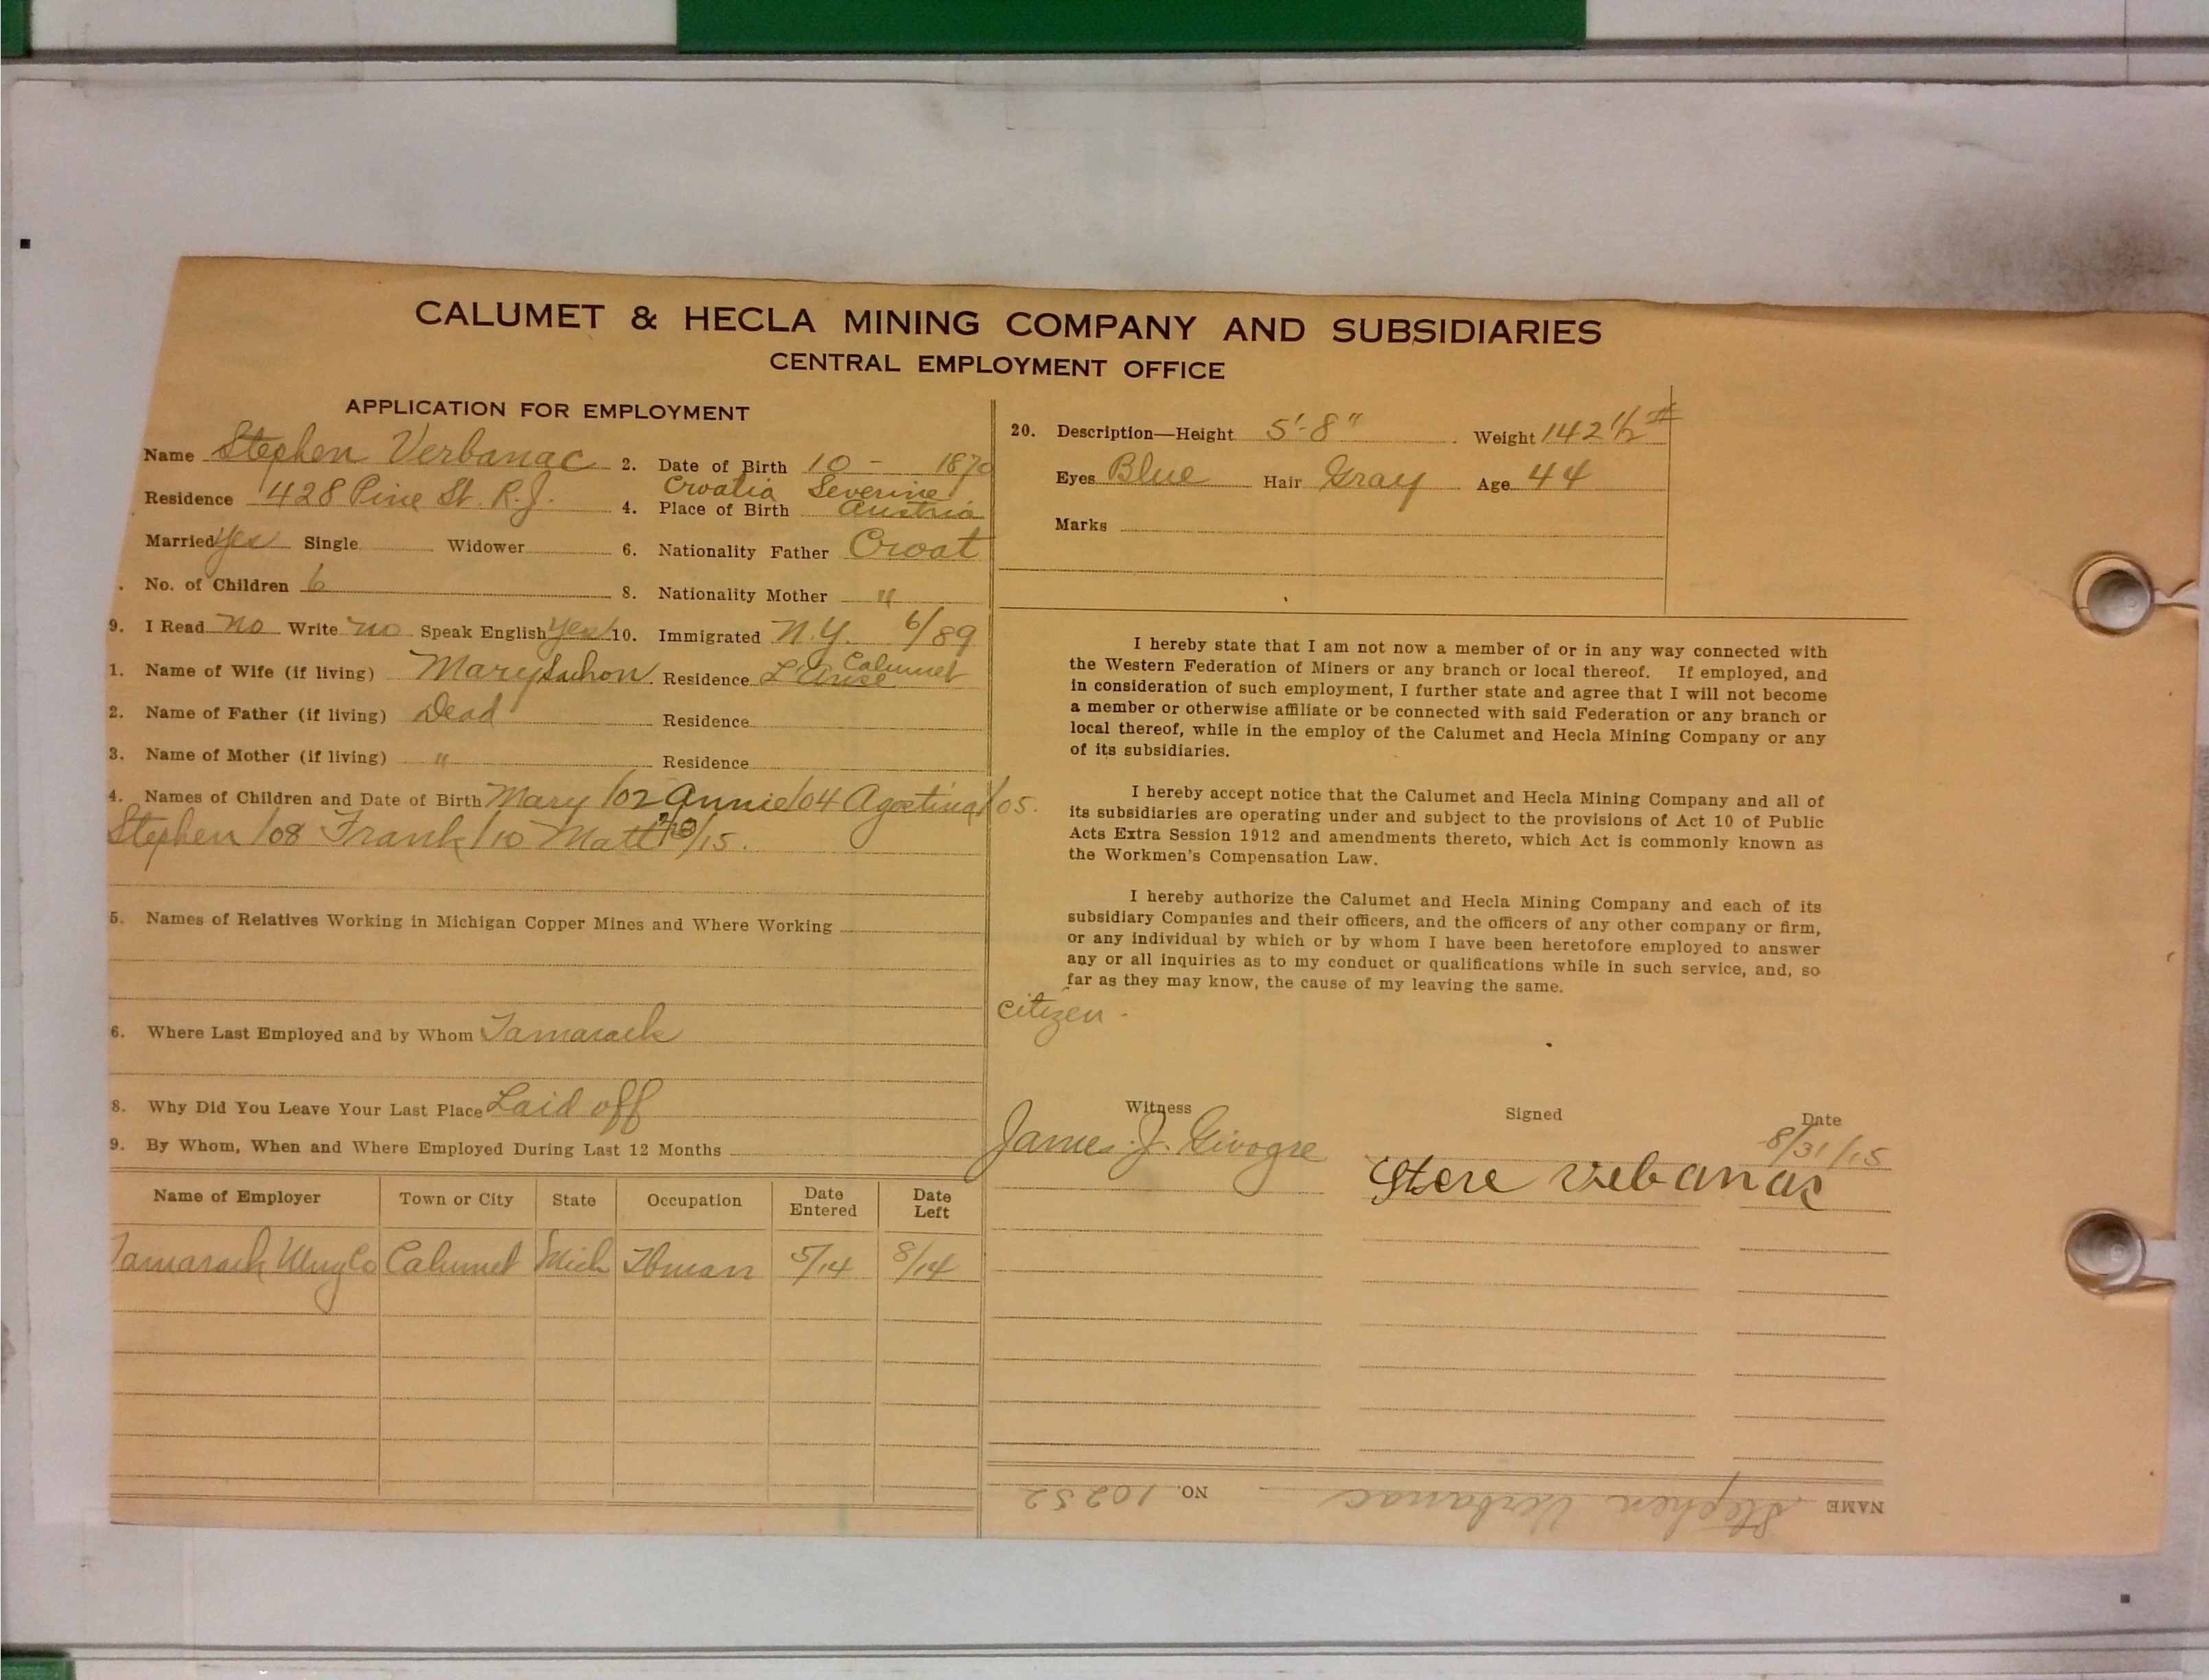 CALUMET & HECLA MINING COMPANY AND SUBSIDIARIES
CENTRAL EMPLOYMENT OFFICE
APPLICATION FOR EMPLOYMENT
Name Stephen Verbanac 2. Date of Birth 10 - 1870
Residence 428 Pine St. R.J. 4. Place of Birth Croatia Severine Austria
Married Yes Single Widower 6. Nationality Father Croat
. No. of Children 6 8. Nationality Mother "
9. I Read no Write no Speak English yes 10. Immigrated N.Y. 6/89
1. Name of Wife (if living) Mary Residence L'Anse Calumet
2. Name of Father (if living) Dead Residence
3. Name of Mother (if living) " Residence
4. Names of Children and Date of Birth Mary /02 Annie /04 Agostina /05.
Stephen /08 Frank /10 Matt /15.
5. Names of Relatives Working in Michigan Copper Mines and Where Working
6. Where Last Employed and by Whom Tamarack
8. Why Did You Leave Your Last Place Laid off
9. By Whom, When and Where Employed During Last 12 Months
Name of Employer Town or City State Occupation Date Entered Date Left
Tamarack Mng Co Calumet Mich 5/14 8/14
20. Description—Height 5'-8" Weight 142 1/2 #
Eyes Blue Hair Gray Age 44
Marks
I hereby state that I am not now a member of or in any way connected with
the Western Federation of Miners or any branch or local thereof. If employed, and
in consideration of such employment, I further state and agree that I will not become
a member or otherwise affiliate or be connected with said Federation or any branch or
local thereof, while in the employ of the Calumet and Hecla Mining Company or any
of its subsidiaries.
I hereby accept notice that the Calumet and Hecla Mining Company and all of
its subsidiaries are operating under and subject to the provisions of Act 10 of Public
Acts Extra Session 1912 and amendments thereto, which Act is commonly known as
the Workmen's Compensation Law.
I hereby authorize the Calumet and Hecla Mining Company and each of its
subsidiary Companies and their officers, and the officers of any other company or firm,
or any individual by which or by whom I have been heretofore employed to answer
any or all inquiries as to my conduct or qualifications while in such service, and, so
far as they may know, the cause of my leaving the same.
citizen -
Witness Signed Date
James J. Givogre 8/31/15
Stere Vebanac
NAME Stephen Verbanac NO. 10252